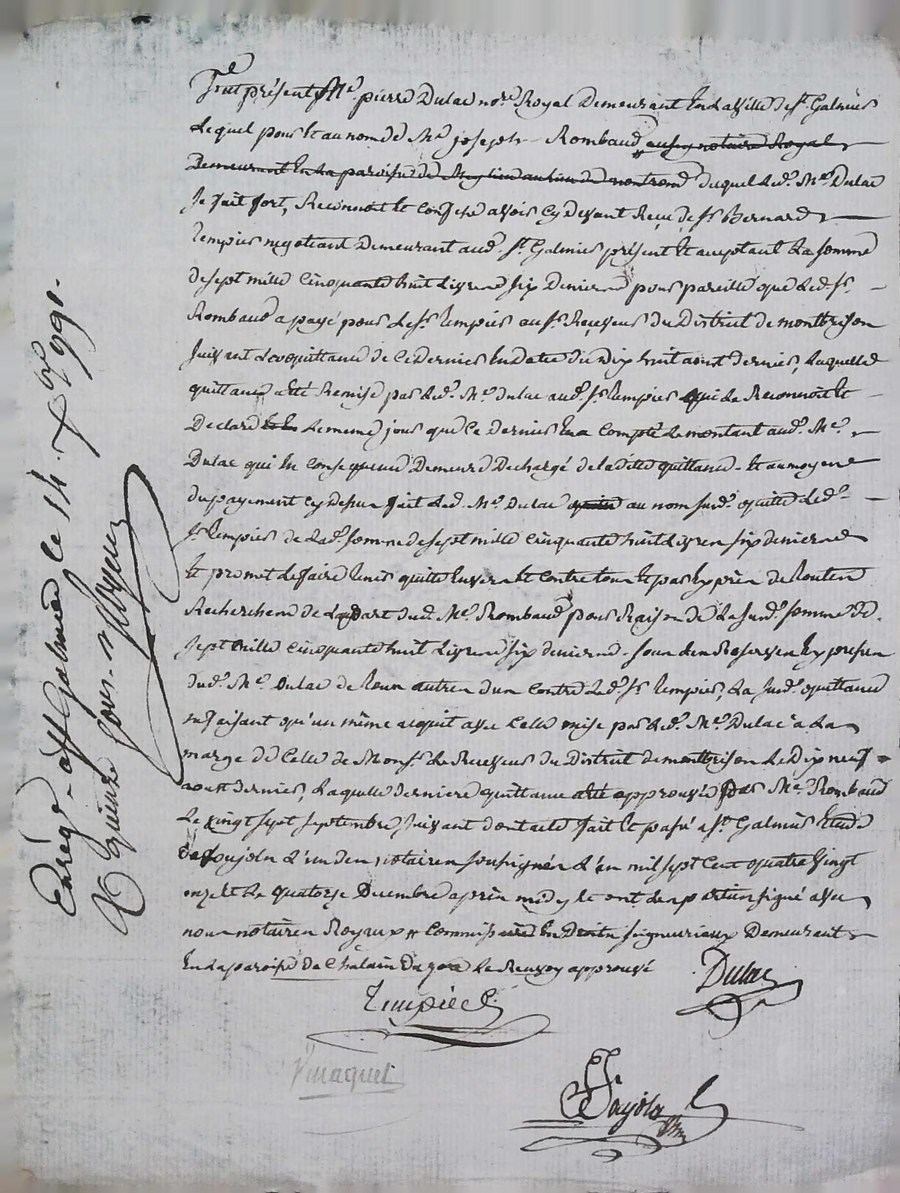 fut présent Me. pierre Dulac nore. Royal Demeurant En la Ville de st. Galmier
Lequel pour Et au nom de Mr. joseph Rombaud aussy notaire Royal
Demeurant En la paroisse de au lieu de montrond duquel Led. Me. Dulac
se fait fort, Reconnoit Et Confesse avoir Cy Devant Reçu de sr. Bernard
Tempier negotiant Demeurant aud. st. Galmier présent Et aceptant La somme
de sept mille Cinquante huit Livres six Deniers pour pareille que Led. sr.
Rombaud a payé pour Le sr. Tempier au sr. Receveur du District de montbrison
suivant La quittance de Ce Dernier En datte du Dix huit aout dernier, Laquelle
quittance a été Remise par Led. Me. Dulac aud. sr. Tempier qui Le Reconnoit Et
Declare Le meme jour que Ce Dernier En a Compté Le montant aud. Me.
Dulac qui En Consequence Demeure Dechargé de la ditte quittance. Et au moyen
du payement Cy Dessus fait Led. Me. Dulac au nom susd. quitte Led.
sr. Tempier de Lad. somme de sept mille Cinquante huit Livres six deniers
Et promet Le faire tenir quitte Envers Et Contre tous Et par Exprès de toutes
Recherches de La part dud. Me. Rombaud pour Raison de La susd. somme de
sept mille Cinquante huit Livres six deniers. sous les Reserves Expresses
dud. Me. Dulac de tous autres dus Contre Led. sr. Tempier, La susd. quittance
ne faisant qu'un même acquit avec Celle mise par Led. Me. Dulac a La
marge de Celle de Monsr. Le Receveur du District de montbrison Le Dix neuf
aoust dernier, Laquelle derniere quittance a été approuvée par Me. Rombaud
Le vingt sept septembre suivant dont acte fait Et passé a st. Galmier Etude
de foujols L'un des notaires soussignés L'an mil sept Cent quatre vingt
onze Et Le quatorze Decembre après midy Et ont Les parties signé avec
nous notaires Royaux Commissaire En Droits seigneuriaux Demeurant
En la paroisse de Chalain Le Renvoy approuvé
Dulac
Tempier
Enregé. a st Galmier le 14. Xbre 1791.
R quinze sous.